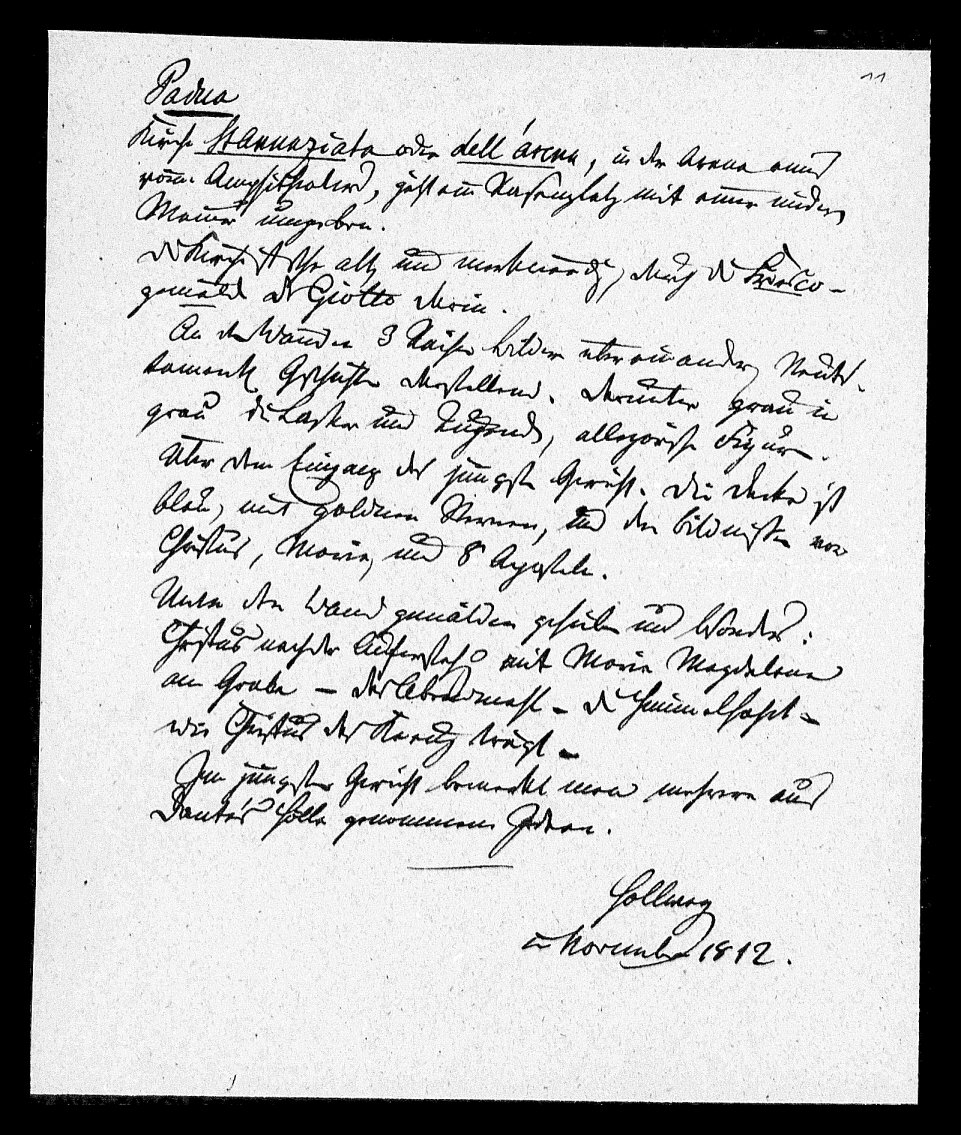 11
Padua
Kirche St Annunziata oder dell'arena, in der Arena eines
röm. Amphitheaters, jetzt ein Rasenplatz mit einer niedern
Mauer umgeben.
die Kirche ist sehr alt, und merkwürdig, durch die Fresco-
gemälde des Giotto darin.
An den Wänden 3 Reihen bilder über einander, Neutes-
tamentl. Geschichte darstellend. darunter grau in
grau die Laster und Tugenden, allegorische Figuren.
über dem Eingang das jüngste Gericht. die decke ist
blau, mit goldnen Sternen, und den bildnissen von
Christus, Maria, und 8 Aposteln.
Unter den Wandgemälden gefielen mir besonders:
Christus nach der Auferstehg mit Maria Magdalena
am Grabe – das Abendmahl – die Himmelfahrt –
wie Christus das Kreuz trägt –
Im jüngsten Gericht bemerkt man mehrere aus
Dante's Hölle genommene Ideen.
Hollweg
November 1812.